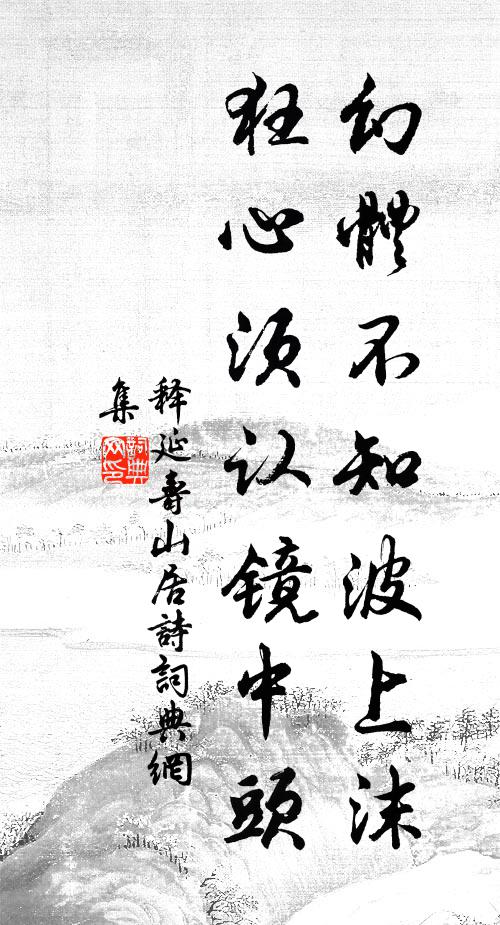 幻體不知波上沫
狂心须认鏡中頭
释延壽山居詩詞典網
集
詞典網印